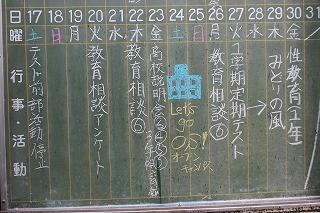 日 17 18 19 20 21 22 23 24 25 26 27 28 29 30 31
曜 土 日 月 火 水 木 金 土 日 月 火 水 木 金
行事・活動
テスト前部活動停止
教育相談アンケート
教育相談⑥
高校説明会
Let's
go
オープン
キャンパス
教育相談⑥
1学期定期テスト
→
みどりの風
性教育(1年)